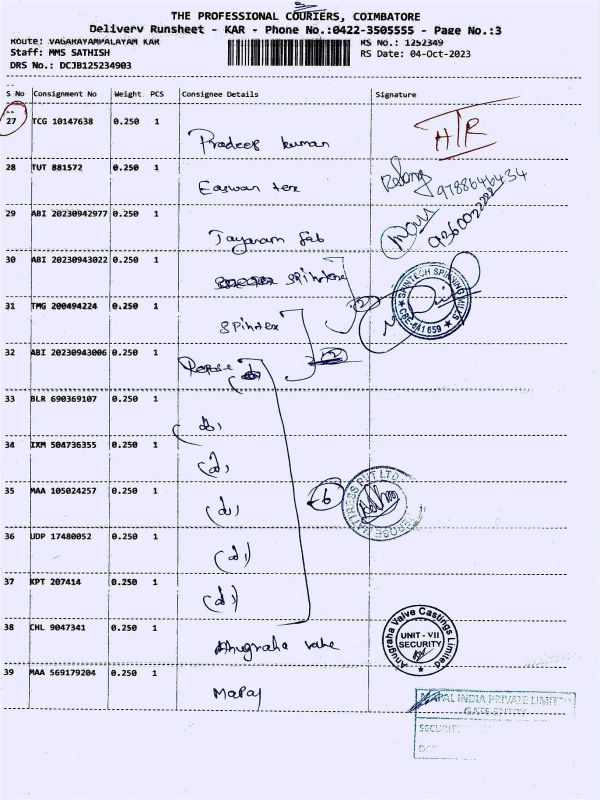 THE PROFESSIONAL COURIERS, COIMBATORE
Delivery Runsheet - KAR - Phone No.:0422-3505555 - Page No.:3
Route: VAGARAYAMPALAYAM KAR
RS No.: 1252349
Staff: MMS SATHISH
RS Date: 04-Oct-2023
DRS No.: DCJB125234903
S No Consignment No Weight PCS Consignee Details Signature
27 TCG 10147638 0.250 1
Pradeep kuman
HTR
28 TUT 881572 0.250 1
Easwan tex
9788646434
29 ABI 20230942977 0.250 1
Jayaram fab
30 ABI 20230943022 0.250 1
Spintex
(2)
SPINTECH SPINNING MILLS
CBE-641 659
31 TMG 200494224 0.250 1
Spintex
32 ABI 20230943006 0.250 1
Repose
33 BLR 690369107 0.250 1
(d)
34 IXM 504736355 0.250 1
(d)
35 MAA 105024257 0.250 1
(d)
6
MATTRESS PVT LTD
36 UDP 17480052 0.250 1
(d)
37 KPT 207414 0.250 1
(d)
38 CHL 9047341 0.250 1
Anugraha valve
Anugraha Valve Castings Limited
UNIT - VII
SECURITY
39 MAA 569179204 0.250 1
Mapal
MAPAL INDIA PRIVATE LIMIT
GATE ENTRY
SECURIT